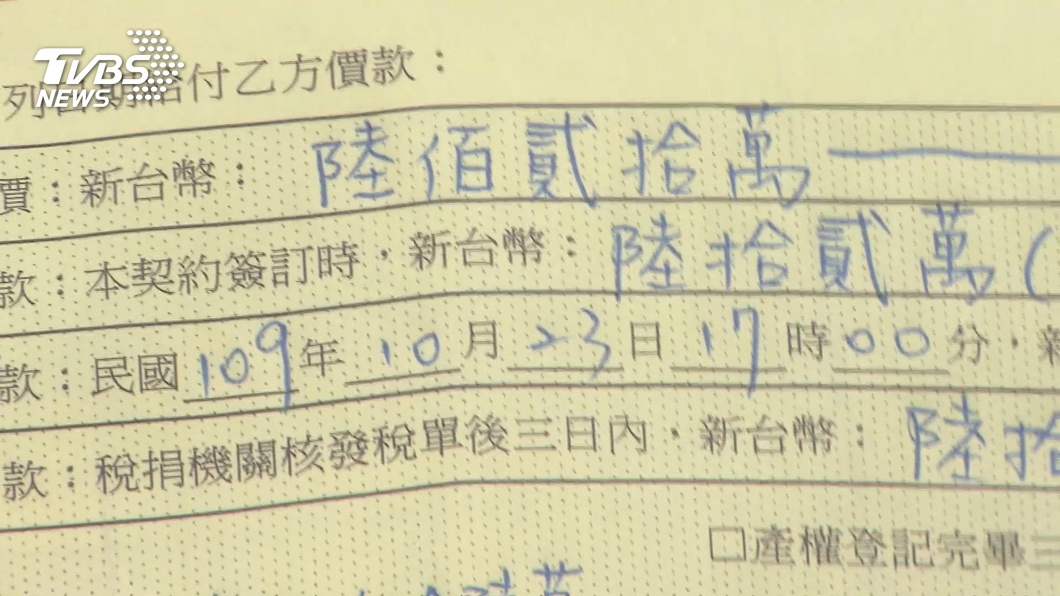 TVBS
NEWS
列日期給付乙方價款：
價：新台幣：陸佰貳拾萬
款：本契約簽訂時，新台幣：陸拾貳萬（
款：民國109年10月23日17時00分，新
款：稅捐機關核發稅單後三日內，新台幣：陸拾
□產權登記完畢三